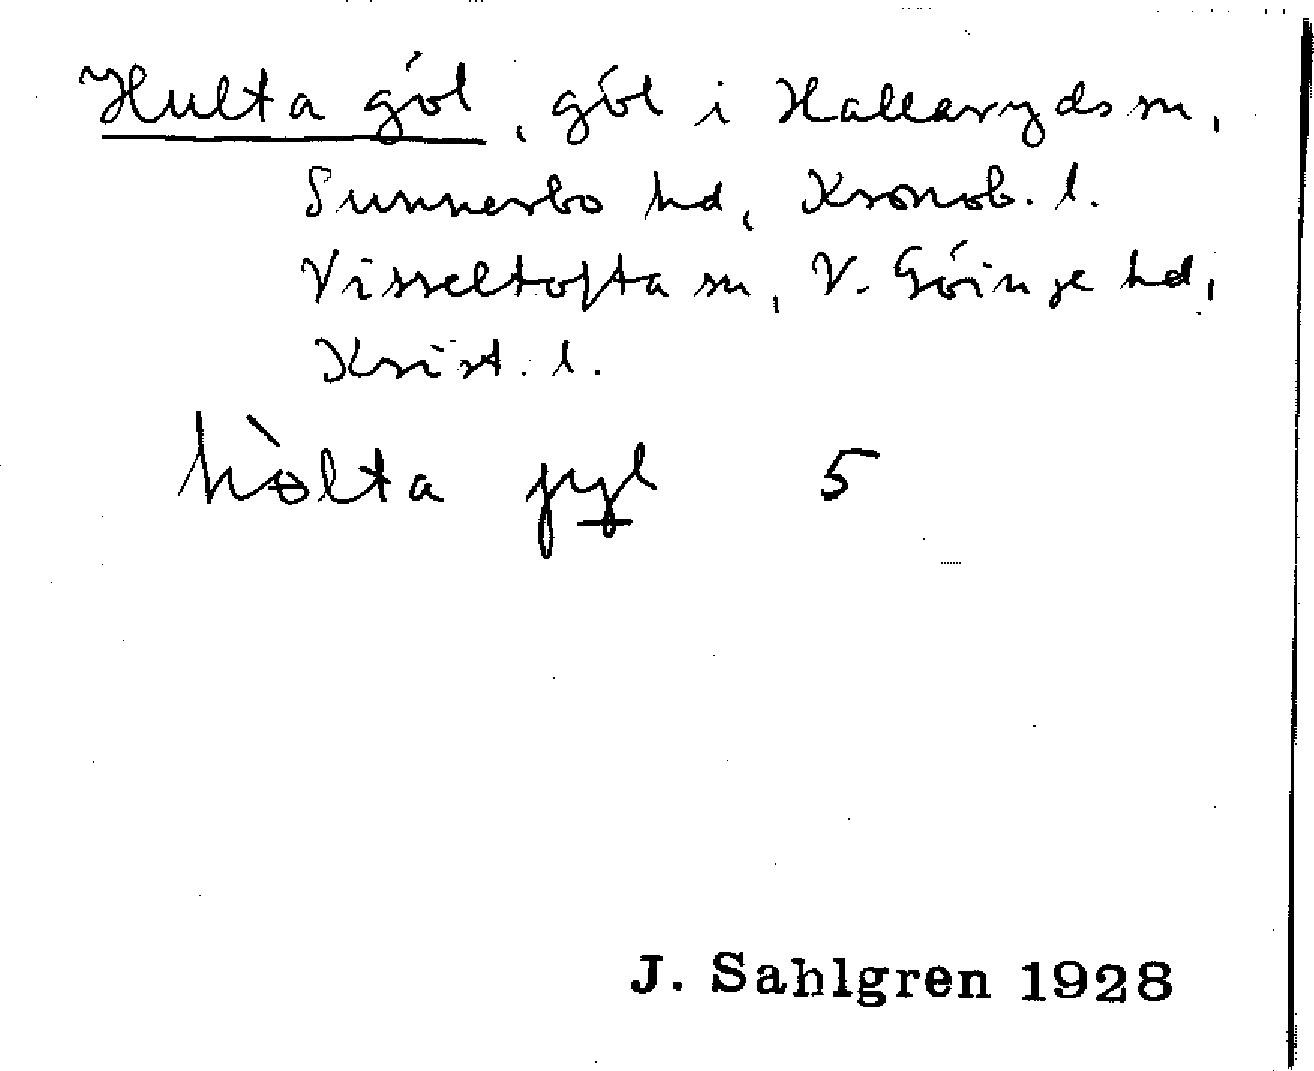 Hulta göl, göl i Hallaryds sn,
Sunnerbo hd, Kronob. l.
Visseltofta sn, V. Göinge hd,
Krist. l.
hòlta jyl 5
J. Sahlgren 1928